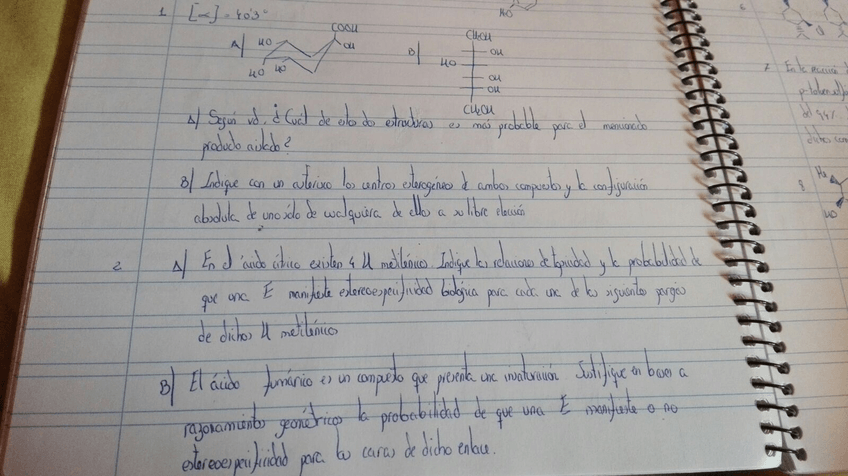 HO
1 [α] = 40'3°
COOH
A) HO OH
HO HO
B) CH2OH
OH
HO
OH
OH
CH2OH
A) Según vd. ¿Cuál de estas dos estructuras es más probable para el mencionado
producto aislado?
B) Indique con un asterisco los centros estereogénicos de ambos compuestos y la configuración
absoluta de uno sólo de cualquiera de ellos a su libre elección
2. A) En el ácido cítrico existen 4 H metilénicos. Indique las relaciones de topicidad y la probabilidad de
que una E manifieste estereoespecificidad biológica para cada una de los siguientes pares
de dichos H metilénicos
B) El ácido fumárico es un compuesto que presenta una insaturación. Justifique en bases a
razonamientos geométricos la probabilidad de que una E manifieste o no
estereoespecificidad para las caras de dicho enlace.
6
Cl
7. En la reacción
dichos
8.
H3
HO